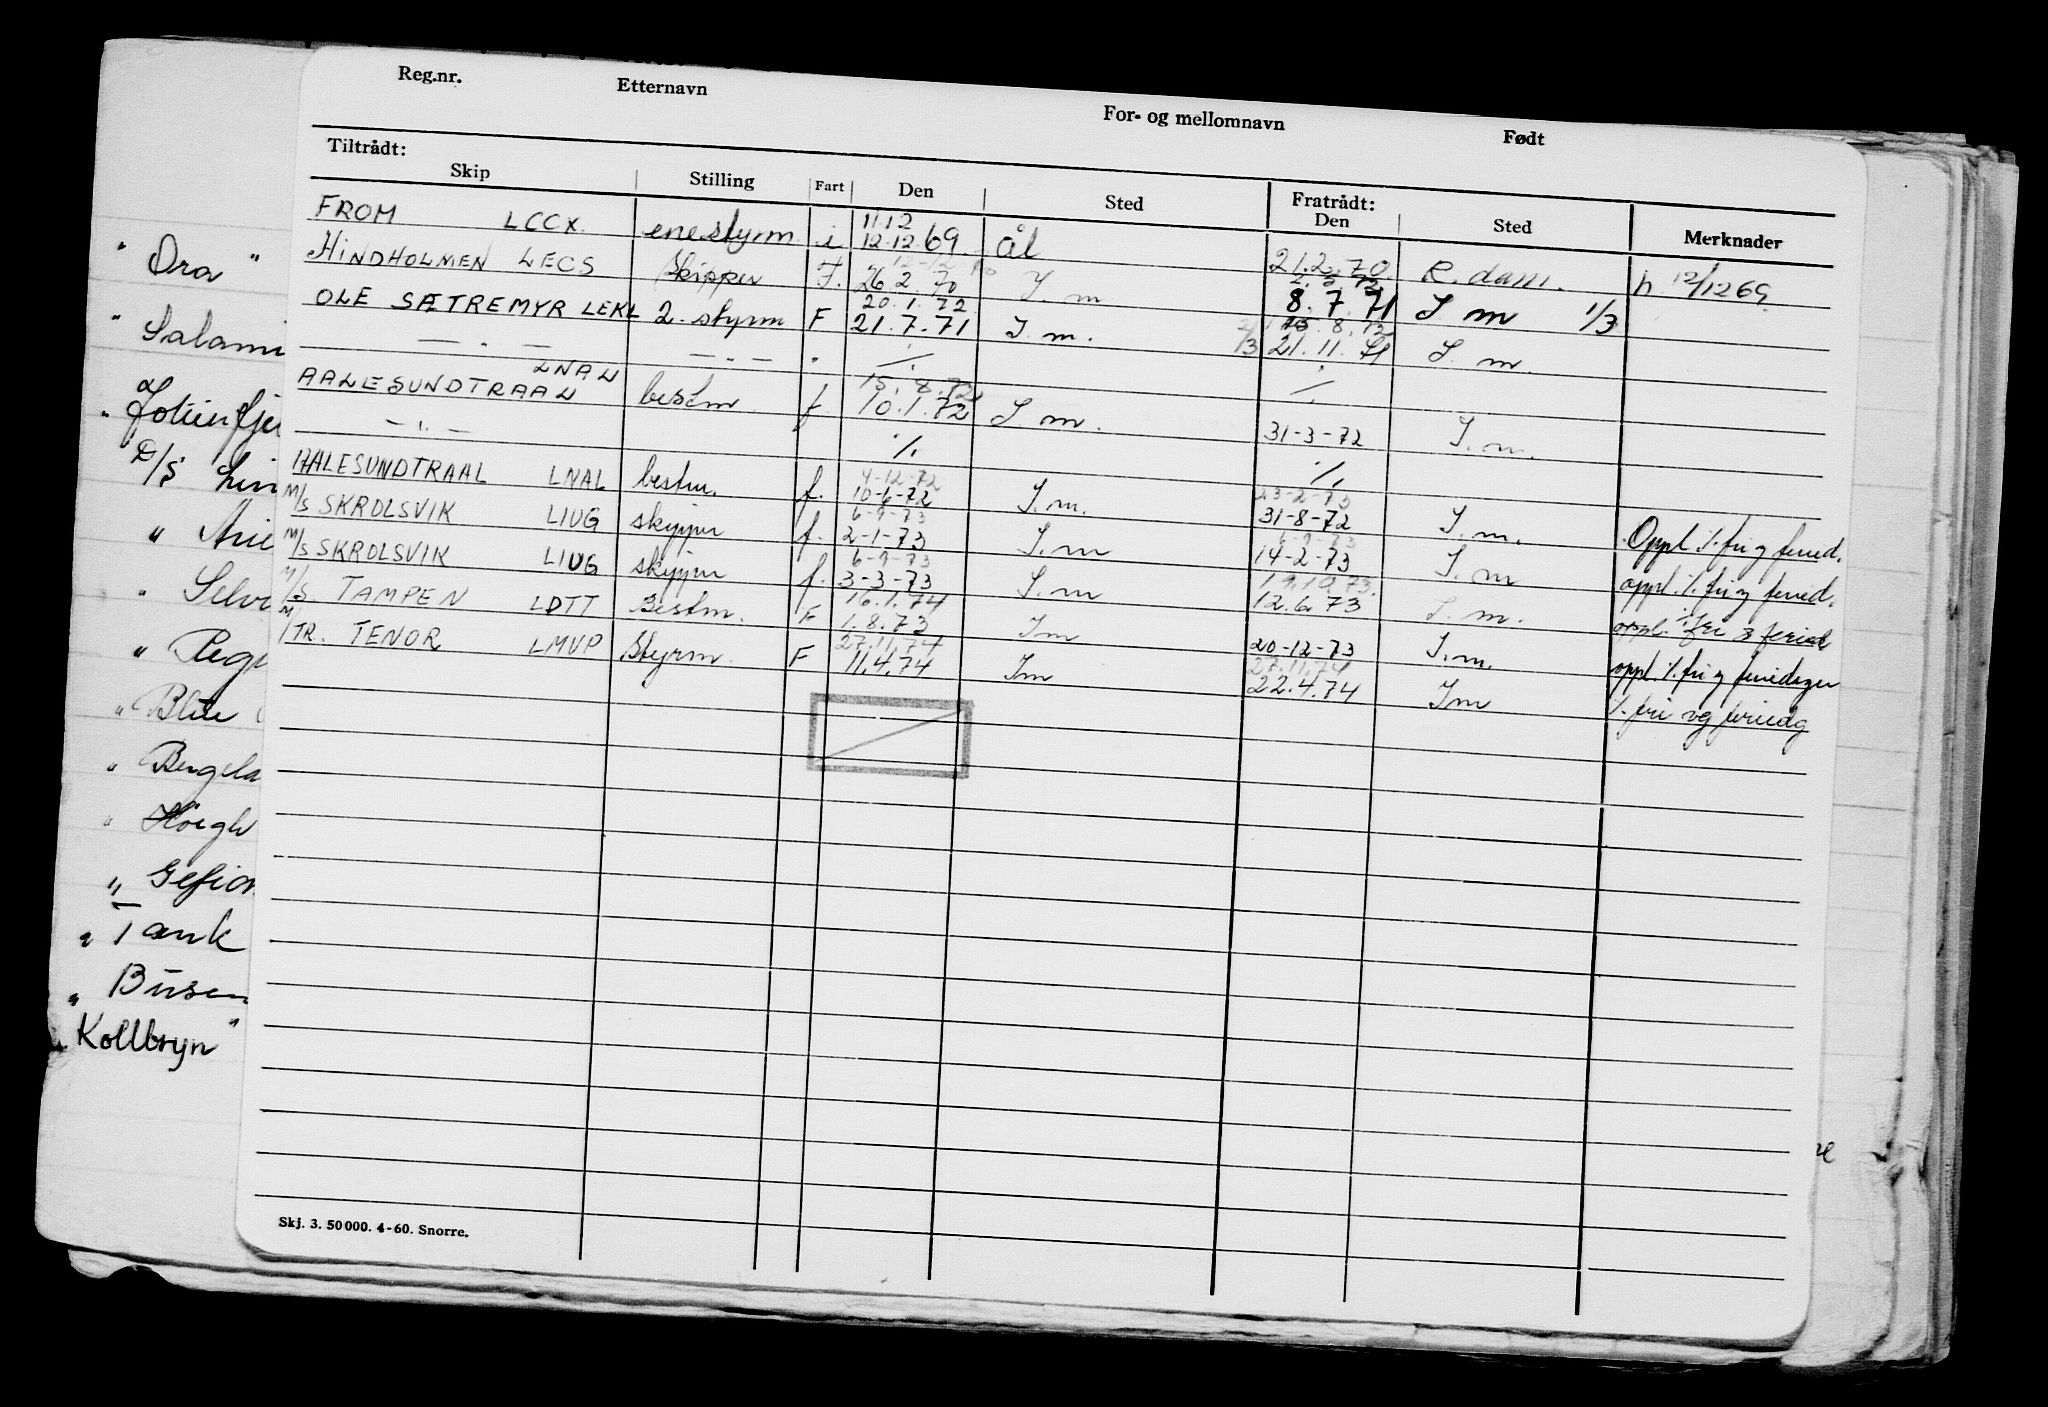 Reg.nr. Etternavn For- og mellomnavn Født
Tiltrådt: Fratrådt:
Skip Stilling Fart Den Sted Den Sted Merknader
11.12
FROM LCCX enestyrm. i 12.12.69 ål 21.2.70 R.dam. h. 12/12 69
HINDHOLMEN LECS Skipper F. 26 2 70 I. m 8.7.71 I m 1/3
20.1.72
OLE SÆTREMYR LEKL 2. styrm F 21.7.71 I. m. 21.11. I. m.
— " — — " — " ./. ./.
LNAL 15.8.72
AALESUNDTRAAL bestm f 10.1.72 I. m. 31-3-72 I. m.
— " — ./. ./.
4-12-72 23-2-73
AALESUNDTRAAL LNAL bestm. f. 10-6-72 I. m. 31-8-72 I. m. Oppl. ./. fri og fried.
6-9-73 6-9-73
M/S SKROLSVIK LIUG skipper f. 2-1-73 I. m 14-2-73 I. m oppl. ./. fri og fried.
6-9-73 19.10.73.
M/S SKROLSVIK LIUG skipper f. 3-3-73 I. m 12.6.73 I. m. oppl. ./. fri og fried
16.1.74
M/S. TAMPEN LDTT Bestm. F 1.8.73 Im 20-12-73 I. m. oppl. ./. fri og feriedager
27.11.74 27.11.74
M/TR. TENOR LMVP Styrm. F 11.4.74 Im 22.4.74 Im ./. fri og feriedg
Skj. 3. 50 000. 4-60. Snorre.
" Ora "
" Salami
" Jotunfje
D/S Lin
"
" Selv
"
" Blue
" Bergela
" Höegh
" Gefion
" Tank
" Busen
" Kollbryn "